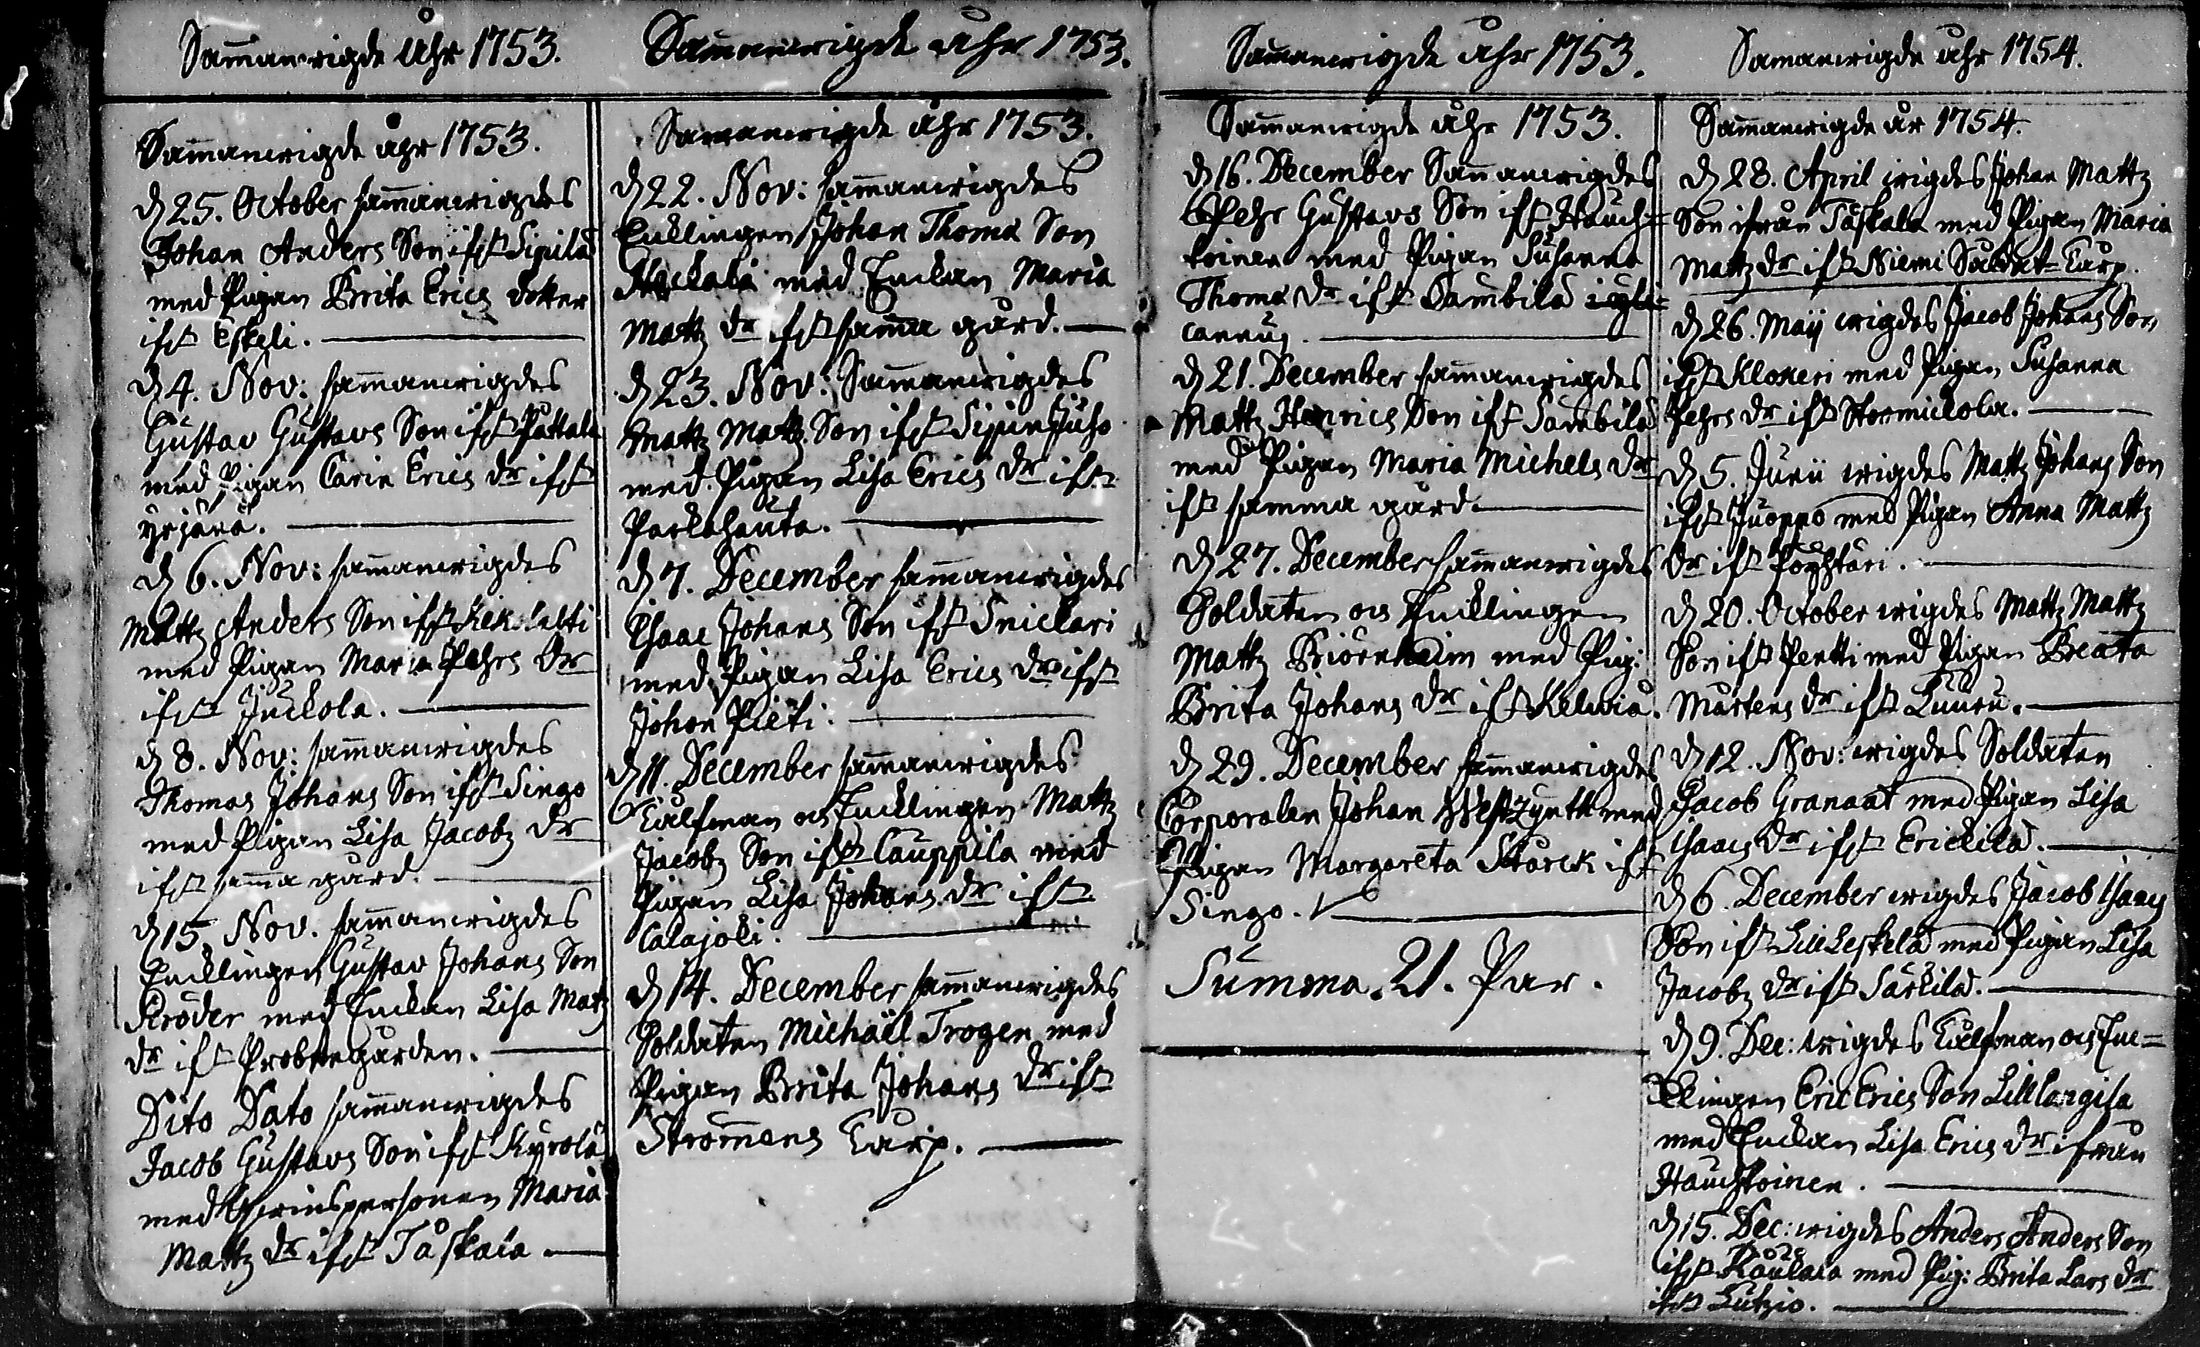 Sammanwigde åhr 1753.
Sammanwigde åhr 1753.
d 25. October sammanwigdes
Johan Anders Son ifr Sipilä
med Pigan Brita Erics dotter
ifr Eskeli.
d 4. Nov: sammanwigdes
Gustav Gustavs Son ifr Pattala
med Pigan Carin Erics dr ifr
Yrjänä.
d 6. Nov: sammanwigdes
Mattz Anders Son ifr
med Pigan Maria Pehrs dr
ifr Juckola.
d 8. Nov: sammanwigdes
Thomas Johans Son ifr Singo
med Pigan Lisa Jacobz dr
ifr samma gård.
d 15. Nov. sammanwigdes
Encklingen Gustav Johans Son
Ströder med Enckan Lisa Matz
dr ifr Probstegården.
Dito Dato sammanwigdes
Jacob Gustavs Son ifr Kyrölä
med Qwinspersonen Maria
Mattz dr ifr Tåskala
Sammanwigde åhr 1753.
Sammanwigde åhr 1753.
d 22. Nov: sammanwigdes
Encklingen Johan Thomæ Son
Häckälä med Enckan Maria
Mattz dr ifr samma gård.
d 23. Nov: Sammanwigdes
Mattz Mattz Son ifr Sipin Juho
med Pigan Lisa Erics dr ifr
Parkahauta.
d 7. December sammanwigdes
Isaac Johans Son ifr Snickari
med Pigan Lisa Erics dr ifr
Johon Pieti.
d 11. December sammanwigdes
Kalfman och Encklingen Mattz
Jacobz Son ifr Cauppila med
Pigan Lisa Johans dr ifr
Calajoki.
d 14. December sammanwigdes
Soldaten Michaël Trogen med
Pigan Brita Johans dr ifr
Strömens Karp.
Sammanwigde åhr 1753.
Sammanwigde åhr 1753.
d 16. December Sammanwigdes
Pehr Gustavs Son ifr Hauch=
koinen med Pigan Susanna
Thomæ dr ifr Sambila
cannus.
d 21. December sammanwigdes
Mattz Henrics Son ifr Sambila
med Pigan Maria Michels dr
ifr samma gård.
d 27. December sammanwigdes
Soldaten och Encklingen
Mattz Biörnheim med Pig:
Brita Johans dr ifr Kelwiå.
d 29. December sammanwigdes
Corporalen Johan med
Pigan Margareta Storck ifr
Singo.
Summa. 21. Par.
Samanwigde åhr 1754.
Sammanwigde år 1754.
d 28. April wigdes Johan Mattz
Son ifrån Tåskala med Pigan Maria
Mattz dr ifr Niemi Soldat-Karp.
d 26. Maij wigdes Jacob Johans Son
ifr Klokeri med Pigan Susanna
Pehrs dr ifr Stormickola.
d 5. Junii wigdes Mattz Johans Son
ifr Juoppo med Pigan Anna Mattz
dr ifr Pöyhtäri.
d 20. October wigdes Mattz Mattz
Son ifr Pentti med Pigan Beata
Mårtens dr ifr Luuru.
d 12. Nov: wigdes Soldaten
Jacob Granaat med Pigan Lisa
Isaacs dr ifr Erickilä.
d 6. December wigdes Jacob Isaacs
Son ifr LillLeskelä med Pigan Lisa
Jacobz dr ifr Särkilä.
d 9. Dec: wigdes Kalfman och Enc=
klingen Eric Erics Son Lilllangila
med Enckan Lisa Erics dr ifrån
Hauchkoinen.
d 15. Dec: wigdes Anders Anders Son
ifr med Pig: Brita Lars dr
ifr Lutzio.